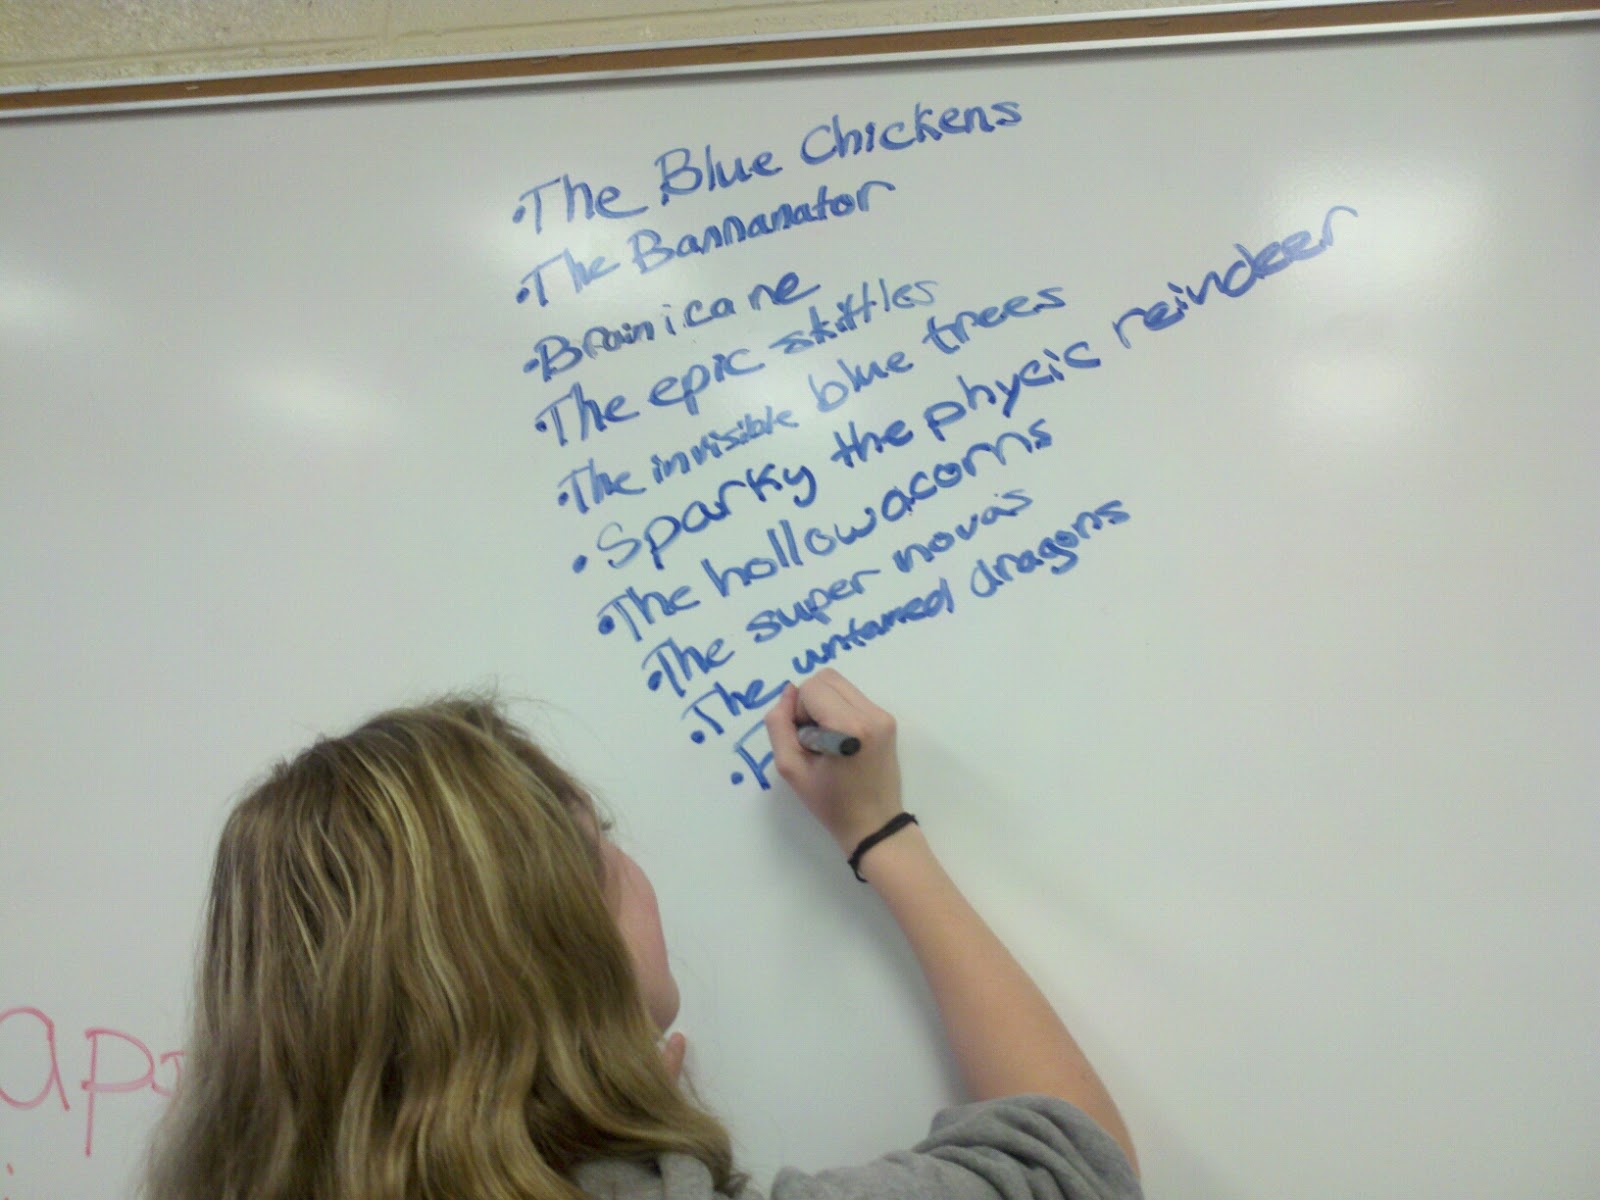 • The Blue Chickens
• The Bannanator
• Brainicane
• The epic skittles
• The invisible blue trees
• Sparky the phycic reindeer
• The hollow acorns
• The super novas
• The untamed dragons
• F